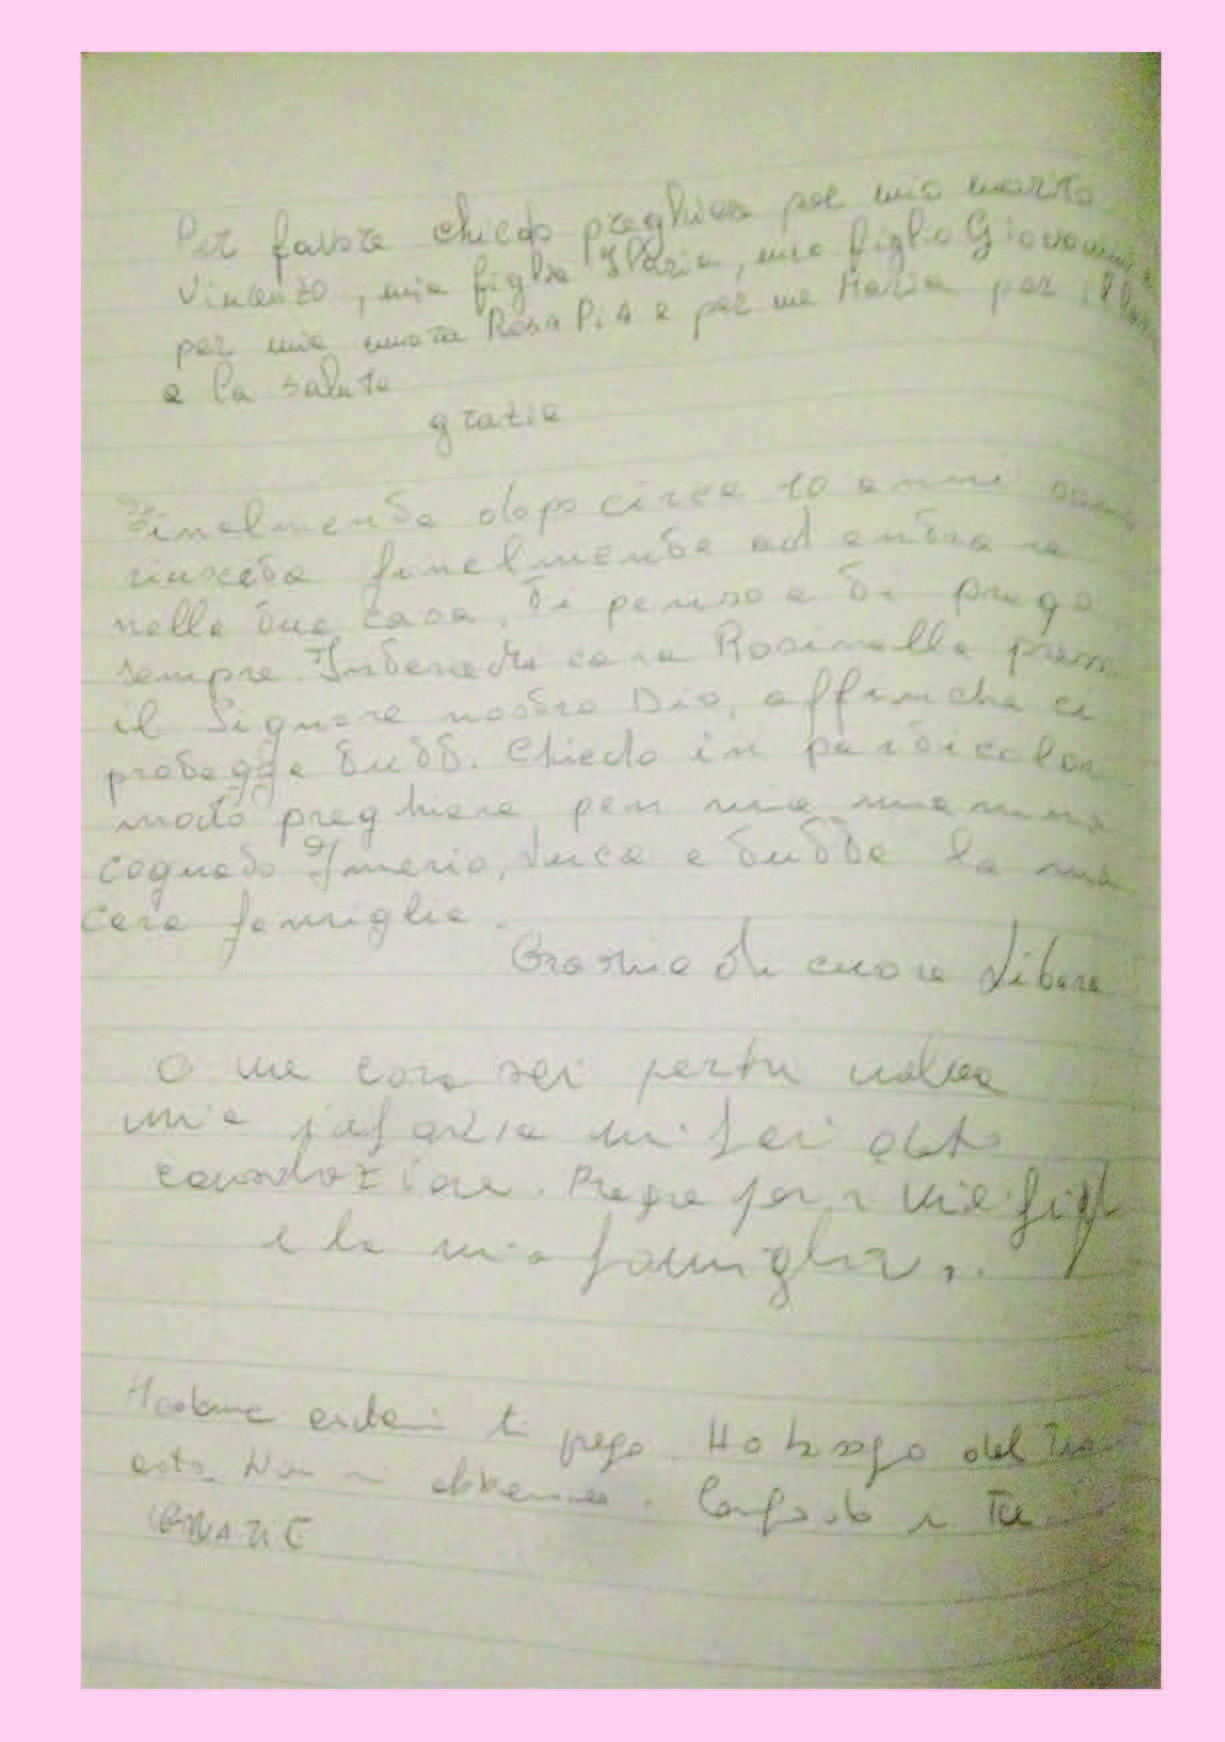 Per favore chiedo preghiere per mio marito
Vincenzo, mia figlia Ilaria, mio figlio Giovanni,
per mia nuora Rosa PIA e per me Maria per il
e la salute
grazie
Finalmente dopo circa 10 anni sono
riuscita finalmente ad entrare
nella tua casa, ti penso e ti prego
sempre. Intercedi cara Rosinella presso
il Signore nostro Dio, affinche ci
protegge tutti. Chiedo in particolar
modo preghiere per mia mamma
cognato Imerio, Luca e tutta la mia
cara famiglia.
Grazie di cuore Libera
O me cara sei nella
mia infanzia mi dato
consolazione. Prega per i miei figli
e la mia famiglia..
ti prego. Ho bisogno del Tuo
aiuto. Non mi abbandonare. Confido in Te
GRAZIE